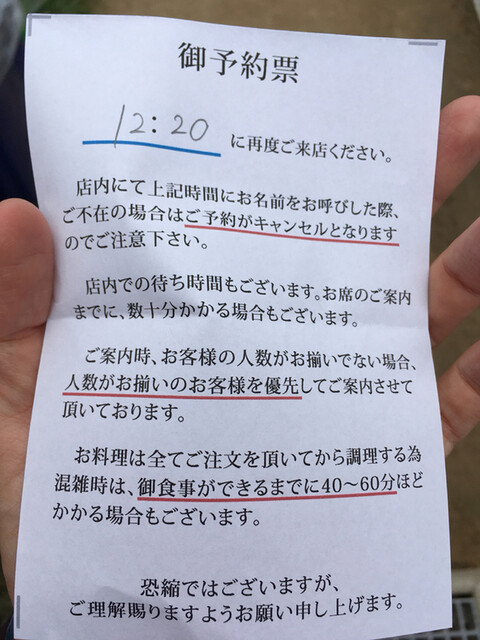 御予約票
12:20 に再度ご来店ください。
店内にて上記時間にお名前をお呼びした際、
ご不在の場合はご予約がキャンセルとなります
のでご注意下さい。
店内での待ち時間もございます。お席のご案内
までに、数十分かかる場合もございます。
ご案内時、お客様の人数がお揃いでない場合、
人数がお揃いのお客様を優先してご案内させて
頂いております。
お料理は全てご注文を頂いてから調理する為
混雑時は、御食事ができるまでに40〜60分ほど
かかる場合もございます。
恐縮ではございますが、
ご理解賜りますようお願い申し上げます。